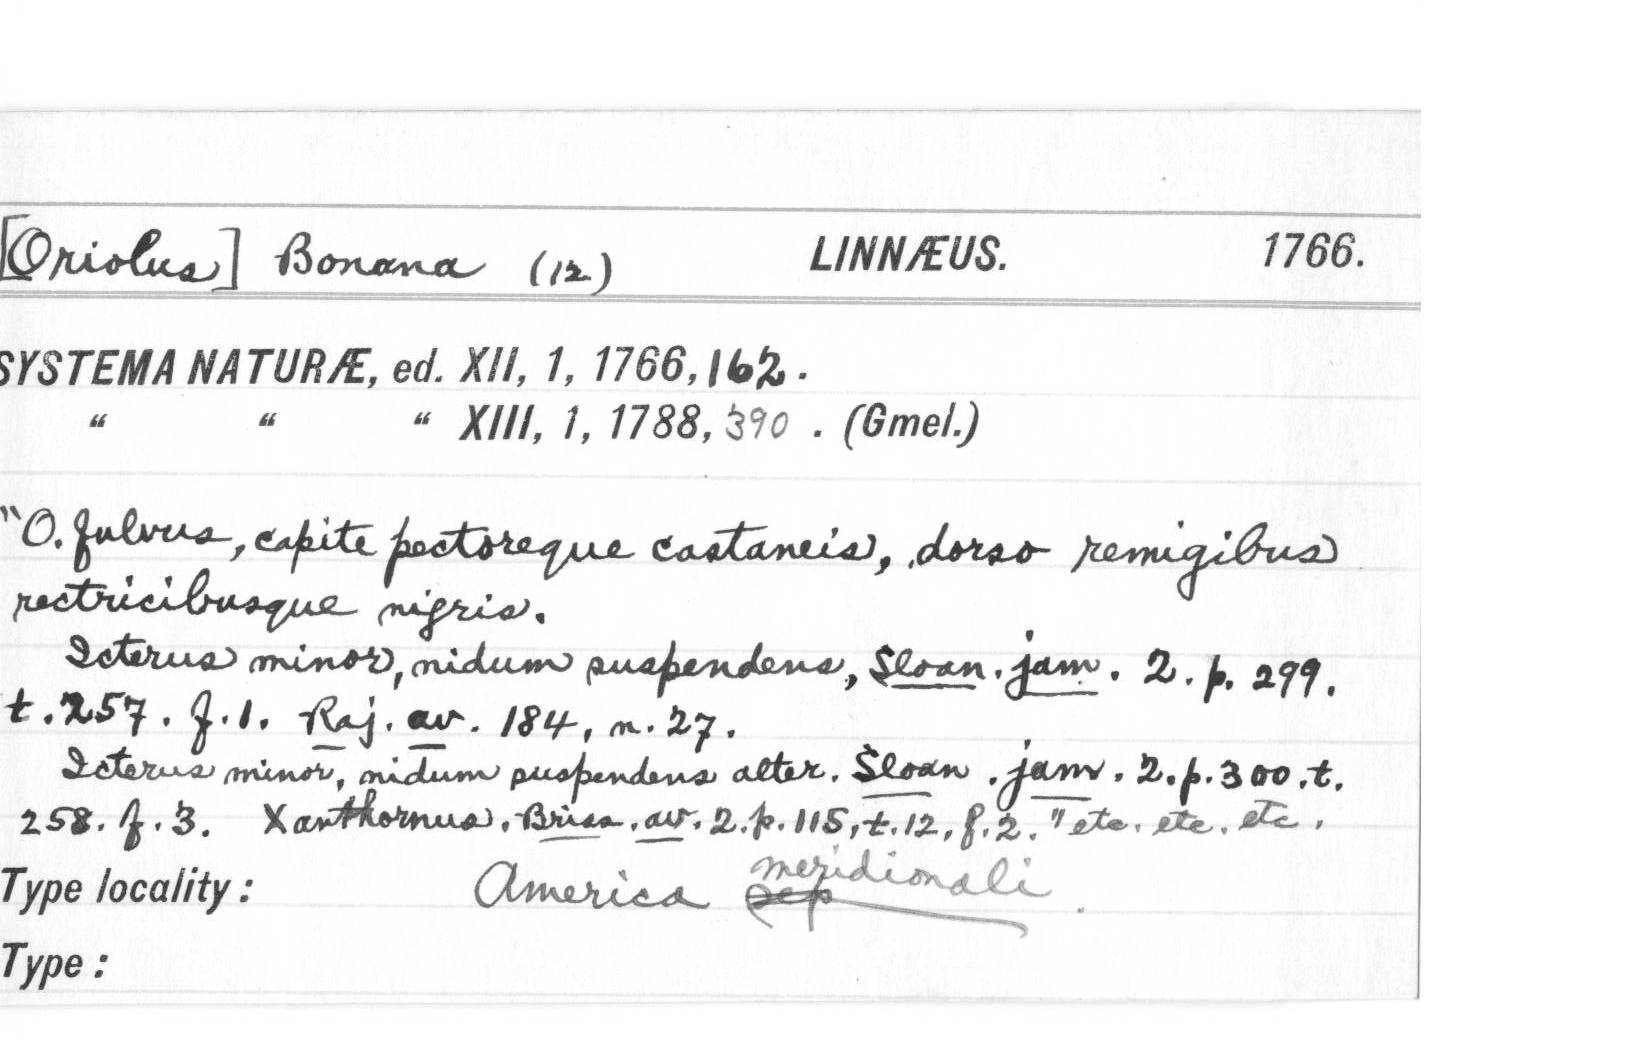 [Oriolus] Bonana (12) LINNÆUS. 1766.
SYSTEMA NATURÆ, ed. XII, 1, 1766, 162.
“ “ “ XIII, 1, 1788, 390. (Gmel.)
"O. fulvus, capite pectoreque castaneis, dorso remigibus
rectricibusque nigris.
Icterus minor, nidum suspendens, Sloan. jam. 2. p. 299.
t. 257. f. 1. Raj. av. 184, n. 27.
Icterus minor, nidum suspendens alter. Sloan. jam. 2. p. 300. t.
258. f. 3. Xanthornus. Briss. av. 2. p. 115, t. 12, f. 2." etc. etc. etc.
Type locality: America meridionali.
Type: